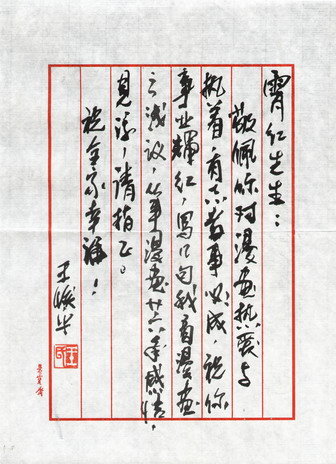 霄红先生：
敬佩你对漫画执爱与
执着，有大志者事必成，祝你
事业辉红，写几句我商漫画
之浅议，从事漫画廿六年感情，
见谅，请指正。
祝全家幸福！
王峻